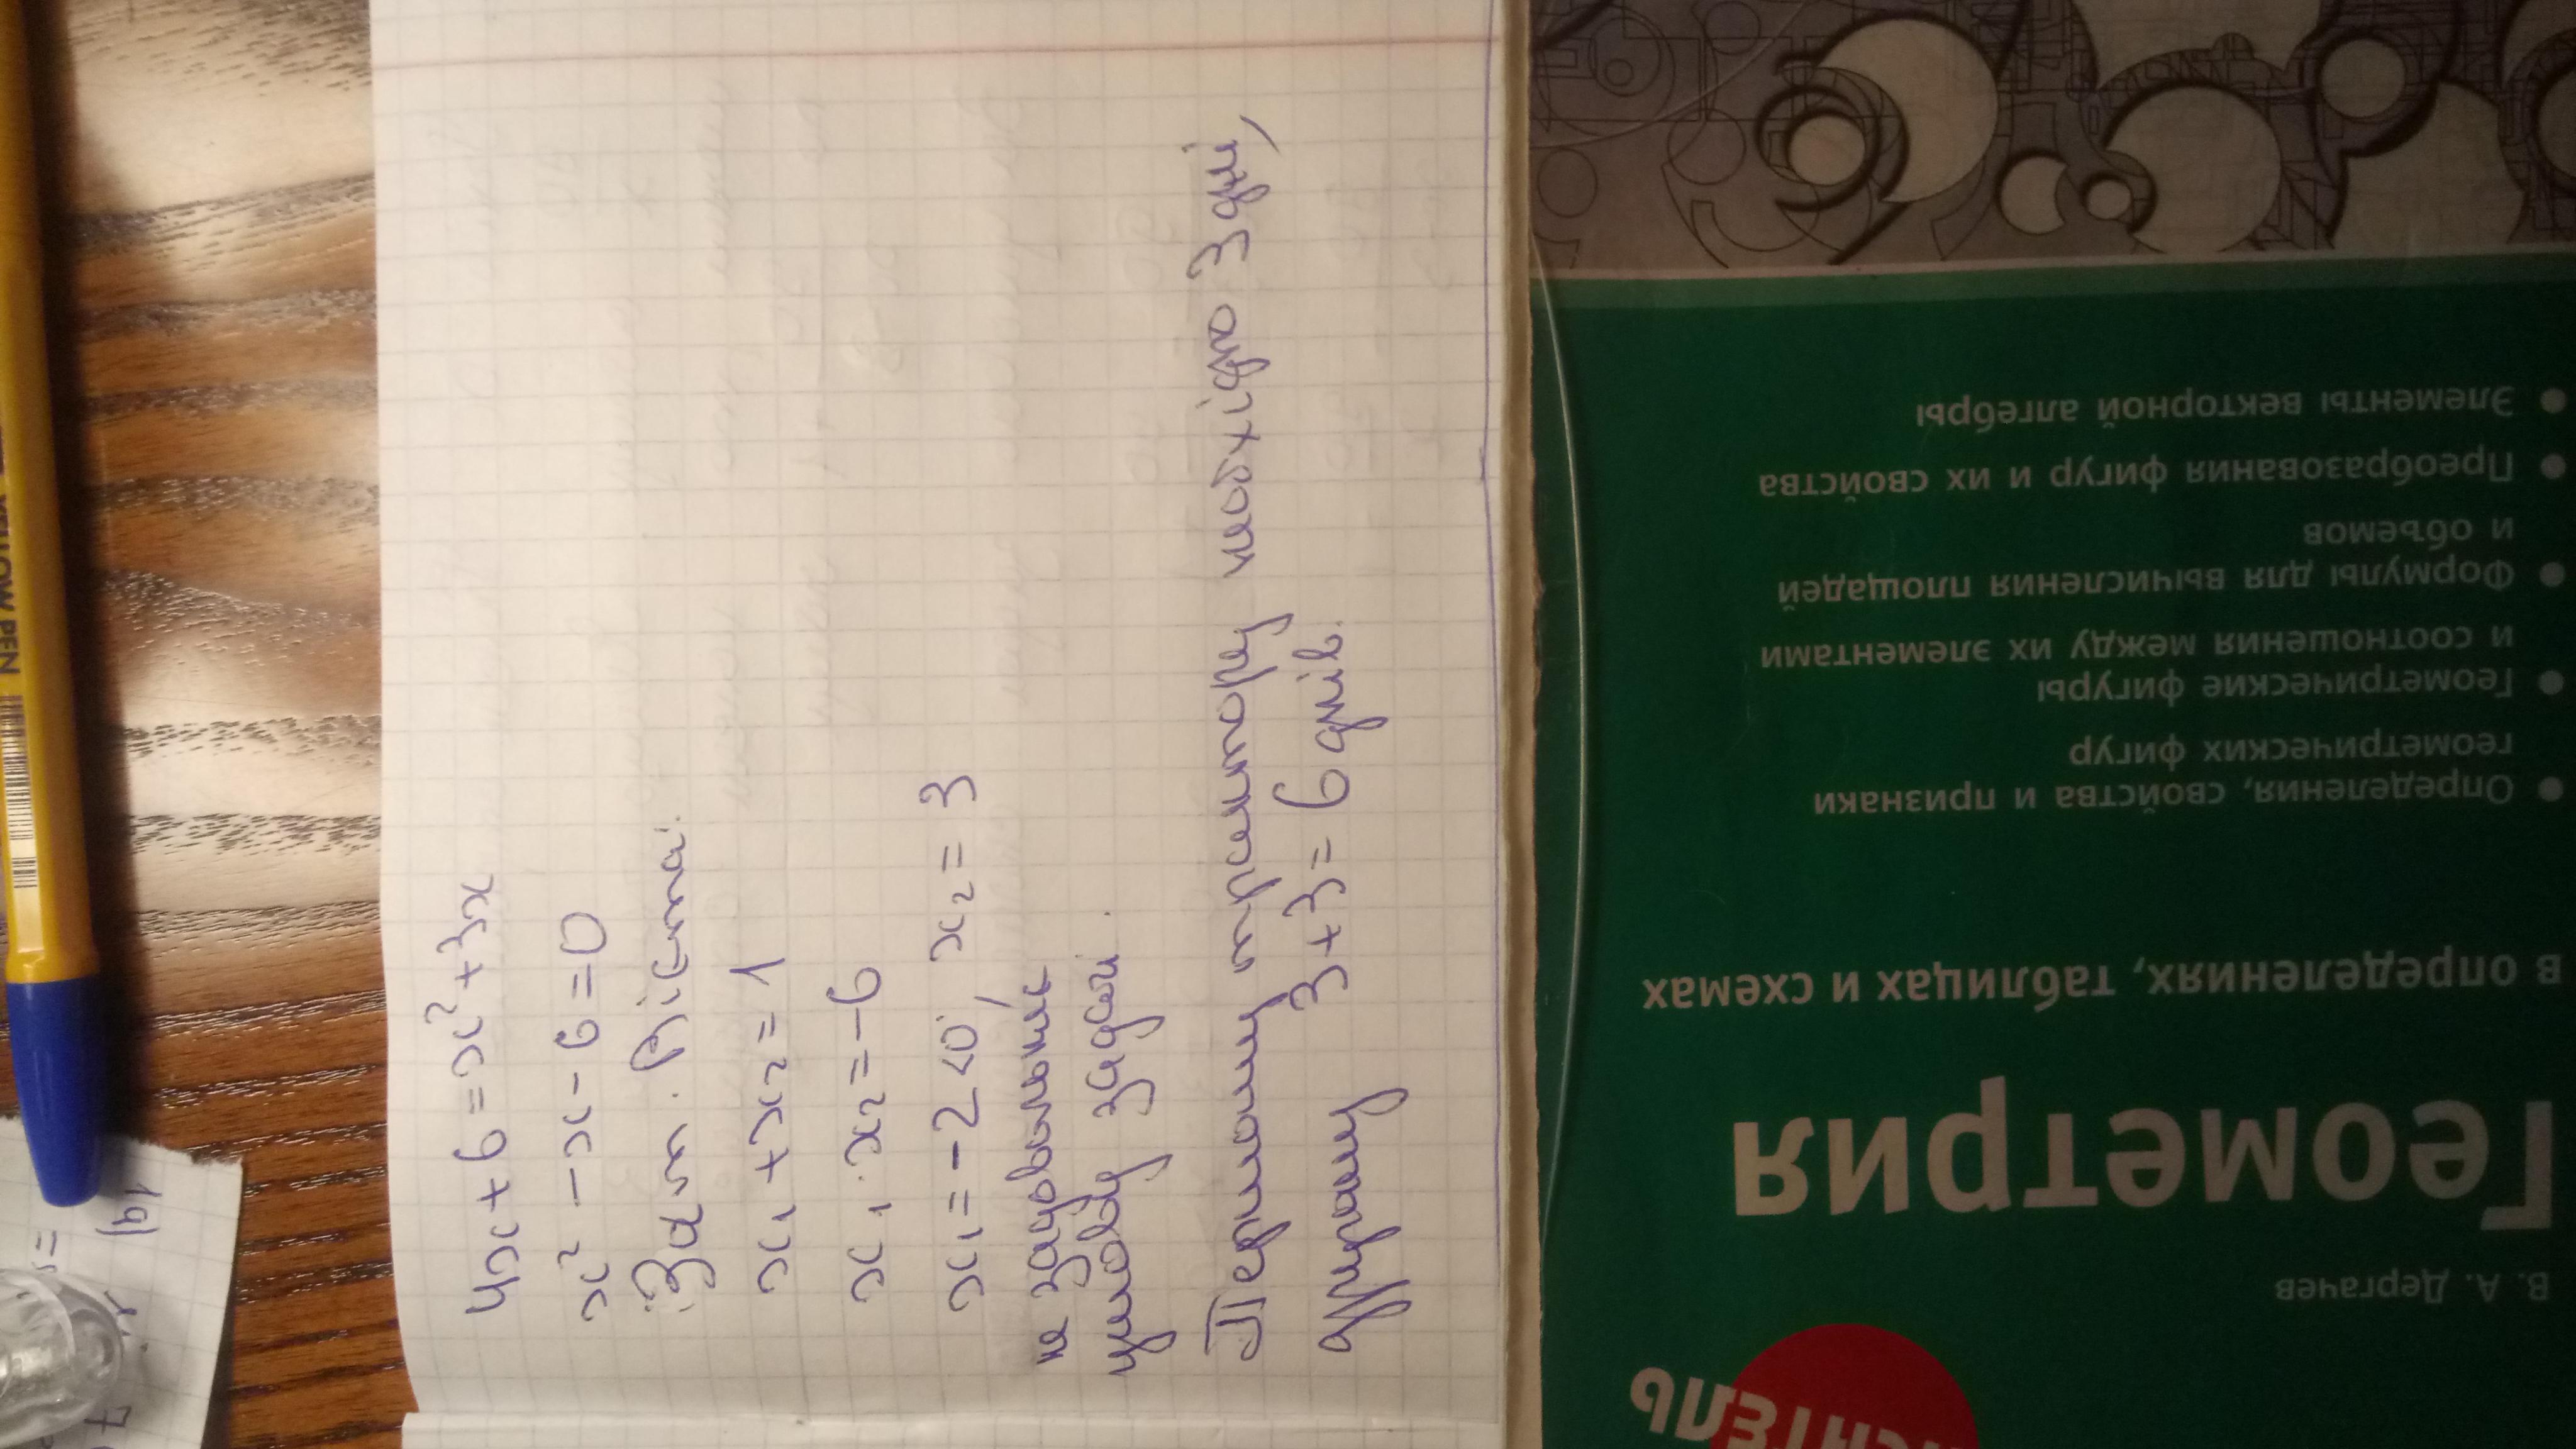 4x + 6 = x² + 3x
x² - x - 6 = 0
За т. Вієта:
x₁ + x₂ = 1
x₁ · x₂ = -6
x₁ = -2 < 0, x₂ = 3
не задовольняє
умову задачі.
Першому трактору необхідно 3 дні,
другому 3 + 3 = 6 днів.
В. А. Дергачев
Геометрия
в определениях, таблицах и схемах
● Определения, свойства и признаки
геометрических фигур
● Геометрические фигуры
и соотношения между их элементами
● Формулы для вычисления площадей
и объемов
● Преобразования фигур и их свойства
● Элементы векторной алгебры
YELLOW PEN